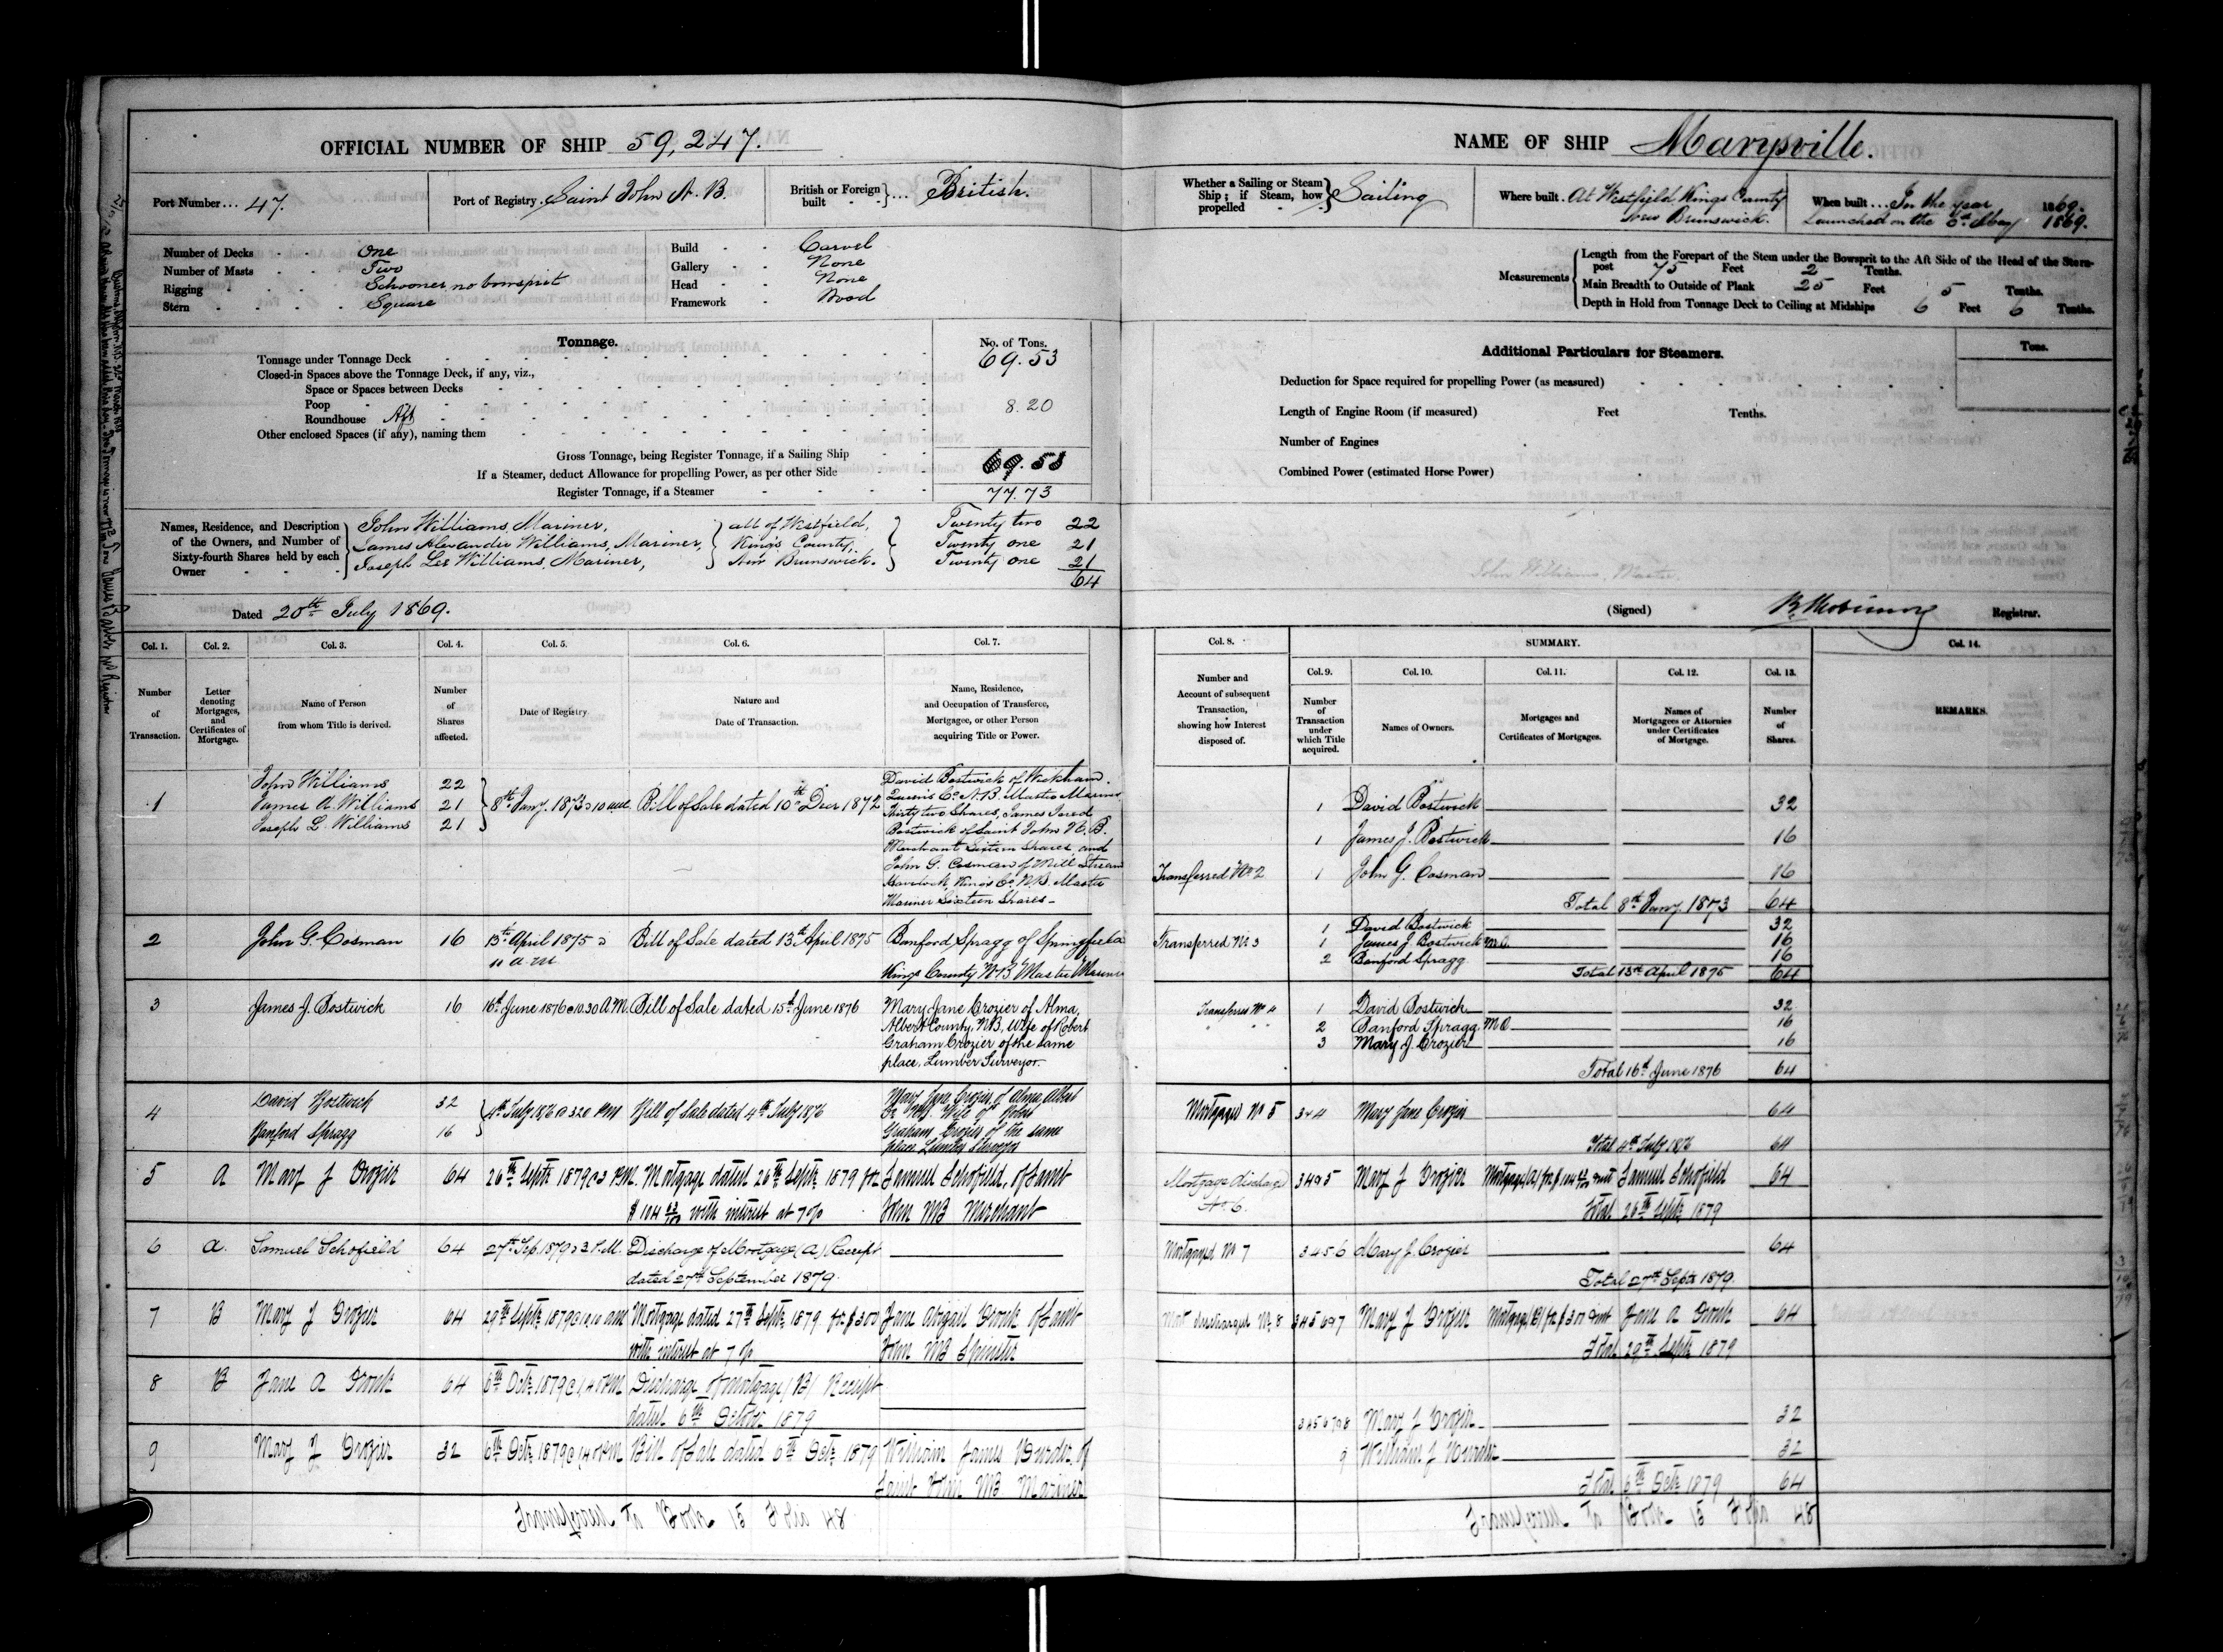 OFFICIAL NUMBER OF SHIP 59,247.
Port Number ... 47.
Port of Registry Saint John N. B.
British or Foreign built } ... British.
Number of Decks One
Number of Masts Two
Rigging Schooner no bowsprit
Stern Square
Build Carvel
Gallery None
Head None
Framework Wood
Tonnage.
No. of Tons.
Tonnage under Tonnage Deck 69.53
Closed-in Spaces above the Tonnage Deck, if any, viz.,
Space or Spaces between Decks
Poop 8.20
Roundhouse Aft
Other enclosed Spaces (if any), naming them
Gross Tonnage, being Register Tonnage, if a Sailing Ship 69.53
If a Steamer, deduct Allowance for propelling Power, as per other Side
Register Tonnage, if a Steamer 77.73
Names, Residence, and Description of the Owners, and Number of Sixty-fourth Shares held by each Owner
John Williams, Mariner, } all of Westfield, } Twenty two 22
James Alexander Williams, Mariner, } King's County, } Twenty one 21
Joseph Lee Williams, Mariner, } New Brunswick. } Twenty one 21
64
Dated 20th July 1869.
Col. 1. Col. 2. Col. 3. Col. 4. Col. 5. Col. 6. Col. 7.
Number of Transaction.
Letter denoting Mortgages, and Certificates of Mortgage.
Name of Person from whom Title is derived.
Number of Shares affected.
Date of Registry.
Nature and Date of Transaction.
Name, Residence, and Occupation of Transferee, Mortgagee, or other Person acquiring Title or Power.
1 John Williams 22
James A. Williams 21
Joseph L. Williams 21
8th Jany. 1873 10 am Bill of Sale dated 10th Decr 1872
David Bostwick of Wickham
Queen's Co. N.B. Master Mariner
Thirty two Shares, James Jared
Bostwick of Saint John N. B.
Merchant Sixteen Shares, and
John G. Cosman of Mill Stream
Havelock King's Co. N.B. Master
Mariner Sixteen Shares
2 John G. Cosman 16 13th April 1875 11 a.m Bill of Sale dated 13th April 1875
Banford Spragg of Springfield
Kings County N B Master Mariner
3 James J. Bostwick 16 16th June 1876 @ 10.30 A.M. Bill of Sale dated 15th June 1876
Mary Jane Crozier of Alma,
Albert County, N.B., Wife of Robert
Graham Crozier of the same
place, Lumber Surveyor.
4 David Bostwick 32
Banford Spragg 16
4th July 1876 @ 3.20 PM Bill of Sale dated 4th July 1876
Mary Jane Crozier of Alma Albert
Co NB. Wife of Robert
Graham Crozier of the same
place Lumber Surveyor
5 A Mary J Crozier 64 26th Septr 1879 @ 3 P.M. Mortgage dated 26th Septr 1879 for
with interest at 7 %
Samuel Schofield, of Saint
John NB Merchant
6 a. Samuel Schofield 64 27th Sep. 1879 @ 2 P.M. Discharge of Mortgage (A) Receipt
dated 27th September 1879.
7 B Mary J Crozier 64 29th Septr 1879 @ 10.10 am Mortgage dated 27th Septr 1879 for $300
with interest at 7 %
Jane Abigail of Saint
John NB Spinster
8 B Jane A 64 6th Octr 1879 Discharge of Mortgage (B) Receipt
dated 6th October 1879
9 Mary J Crozier 32 6th Octr 1879 Bill of Sale dated 6th Octr 1879
William James of
Saint John NB Mariner
Transferred To Book 15 Folio 48
NAME OF SHIP Marysville.
Whether a Sailing or Steam Ship; if Steam, how propelled } Sailing
Where built. At Westfield, Kings County
New Brunswick.
When built ... In the year 1869.
Launched on the May 1869.
Measurements
Length from the Forepart of the Stem under the Bowsprit to the Aft Side of the Head of the Stern-post 75 Feet 2 Tenths.
Main Breadth to Outside of Plank 25 Feet 5 Tenths.
Depth in Hold from Tonnage Deck to Ceiling at Midships 6 Feet 6 Tenths.
Additional Particulars for Steamers.
Tons.
Deduction for Space required for propelling Power (as measured)
Length of Engine Room (if measured) Feet Tenths.
Number of Engines
Combined Power (estimated Horse Power)
John Williams, Master.
(Signed) Registrar.
Col. 8. SUMMARY. Col. 14.
Col. 9. Col. 10. Col. 11. Col. 12. Col. 13.
Number and Account of subsequent Transaction, showing how Interest disposed of.
Number of Transaction under which Title acquired.
Names of Owners.
Mortgages and Certificates of Mortgages.
Names of Mortgagees or Attornies under Certificates of Mortgage.
Number of Shares.
REMARKS.
1 David Bostwick 32
1 James J. Bostwick 16
Transferred No 2 1 John G. Cosman 16
Total 8th Jany. 1873 64
1 David Bostwick 32
Transferred No 3 1 James J. Bostwick 16
2 Banford Spragg 16
Total 13th April 1875 64
Transferred No 4 1 David Bostwick 32
" " " 2 Banford Spragg 16
3 Mary J. Crozier 16
Total 16th June 1876 64
Mortgaged No 5 3 & 4 Mary Jane Crozier 64
Total 4th July 1876 64
Mortgage discharged No. 6. 3 4 & 5 Mary J Crozier Samuel Schofield 64
Total 26th Septr 1879
Mortgaged No 7 3 4 5 6 Mary J. Crozier 64
Total 27th Septr 1879.
Mort discharged No 8 3 4 5 6 & 7 Mary J Crozier Mortgage (B) for $300 Jane A 64
Total 29th Septr 1879
3 4 5 6 7 & 8 Mary J Crozier 32
9 William J 32
Total 6th Octr 1879 64
Transferred To Book 15 Folio 48